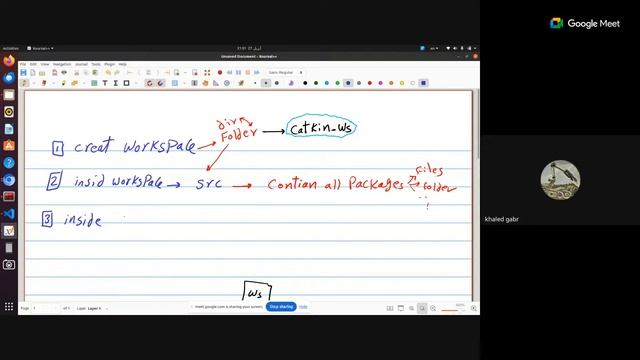 Google Meet
Unsaved Document - Xournal++
File Edit View Navigation Journal Tools Plugin Help
Sans Regular
dir
1 creat workspace → Folder → catkin-ws
2 insid workspace → src → Contian all Packages
Files
Folder
3 inside
ws
khaled gabr
meet.google.com is sharing your screen.
Stop sharing
Hide
Layer 1